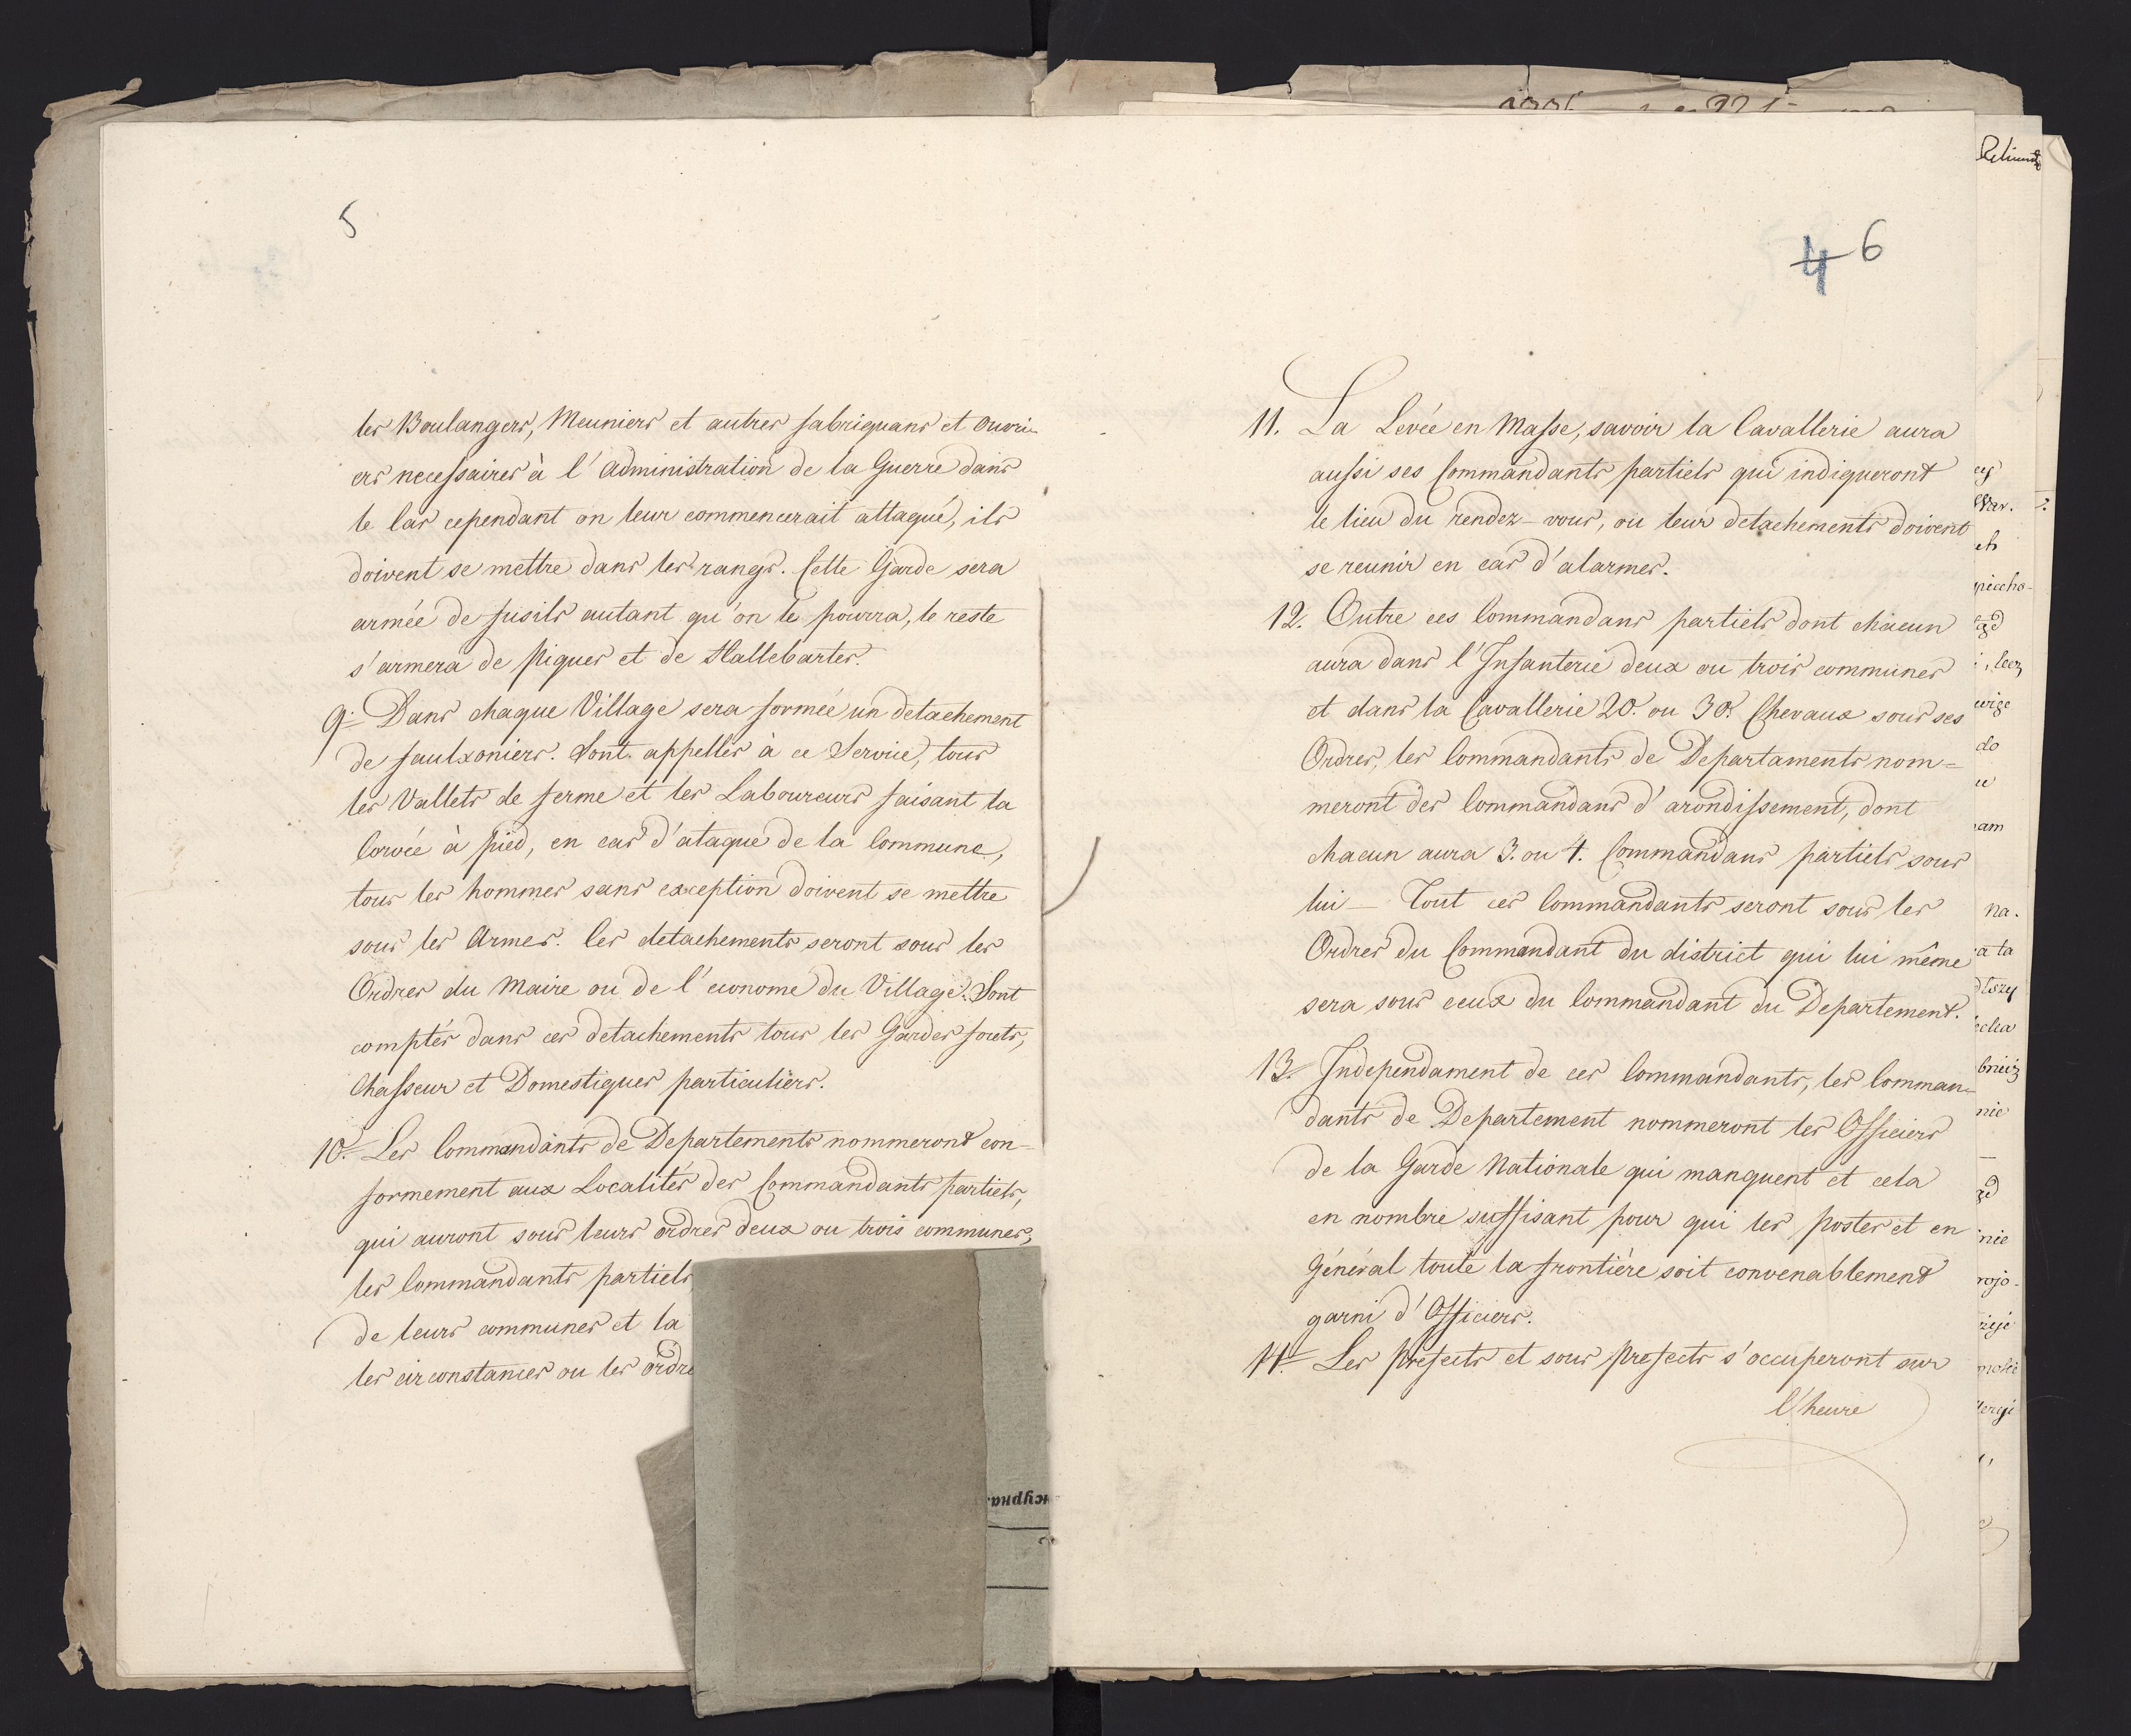 5
les Boulangers, Meuniers et autres fabriquans et Ouvri-
ers necessaires à l'Administration de la Guerre dans
le Cas cependant on leur commencerait attaqué, ils
doivent se mettre dans les rangs. Cette Garde sera
armée de fusils autant qu'on le pourra, le reste
s'armera de Piques et de Hallebartes.
9. Dans chaque Village sera formée un detachement
de faulxoniers. Sont appellés à ce Service, tous
les Vallets de ferme et les Laboureurs faisant la
Corvée à pied, en cas d'ataque de la Commune,
tous les hommes sans exception doivent se mettre
sous les Armes. Ces detachements seront sous les
Ordres du Maire ou de l'econome du Village. Sont
comptés dans ces detachements tous les Gardes forets,
Chasseur et Domestiques particuliers.
10. Les Commandants de Departements nommeront con-
formement aux Localités des Commandants partiels,
qui auront sous leurs ordres deux ou trois communes,
les Commandants partiels
de leurs communes et la
les circonstances ou les ordre
4 6
11. La Levée en Masse, savoir la Cavallerie aura
aussi ses Commandants partiels qui indiqueront
le lieu du rendez-vous, ou leur detachements doivent
se reunir en cas d'alarmes.
12. Outre ces Commandans partiels dont chacun
aura dans l'Infanterie deux ou trois communes
et dans la Cavallerie 20. ou 30. Chevaux sous ses
Ordres, les Commandants de Departaments nom=
meront des Commandans d'arondissement, dont
chacun aura 3. ou 4. Commandans partiels sous
lui — Tout ces Commandants seront sous les
Ordres du Commandant du district qui lui même
sera sous ceux du Commandant du Departement.
13. Independament de ces Commandants, les Comman=
dants de Departement nommeront les Officiers
de la Garde Nationale qui manquent et cela
en nombre suffisant pour qui les postes et en
Général toute la frontière soit convenablement
garni d'Officiers.
14. Les Prefects et sous Prefects s'occuperont sur
l'heure